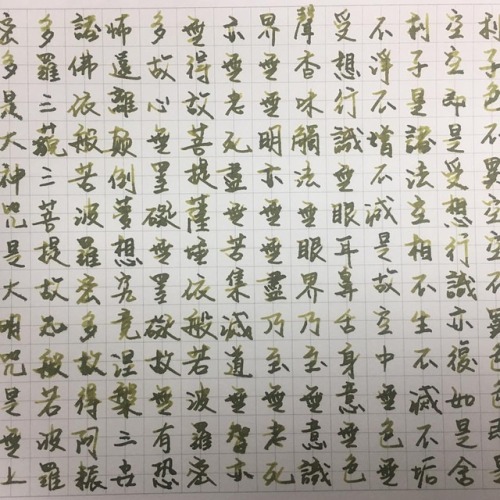 利子色不異空空不異色色即是
空空即是受想行識亦復如是舍
利子是諸法空相不生不滅不垢
不淨不增不減是故空中無色無
受想行識無眼耳鼻舌身意無色
聲香味觸法無眼界乃至無意識
界無無明亦無無盡乃至無老死
亦無老死盡無苦集滅道無智亦
無得故菩提薩埵依般若波羅蜜
多故心無罣礙無罣礙故無有恐
怖遠離顛倒夢想究竟涅槃三世
諸佛依般若波羅蜜多故得阿耨
多羅三藐三菩提故知般若波羅
蜜多是大神咒是大明咒是無上